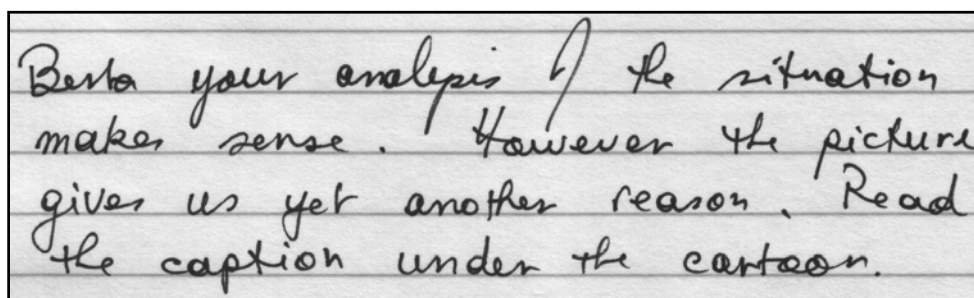 Berta your analysis of the situation
makes sense. However the picture
gives us yet another reason. Read
the caption under the cartoon.